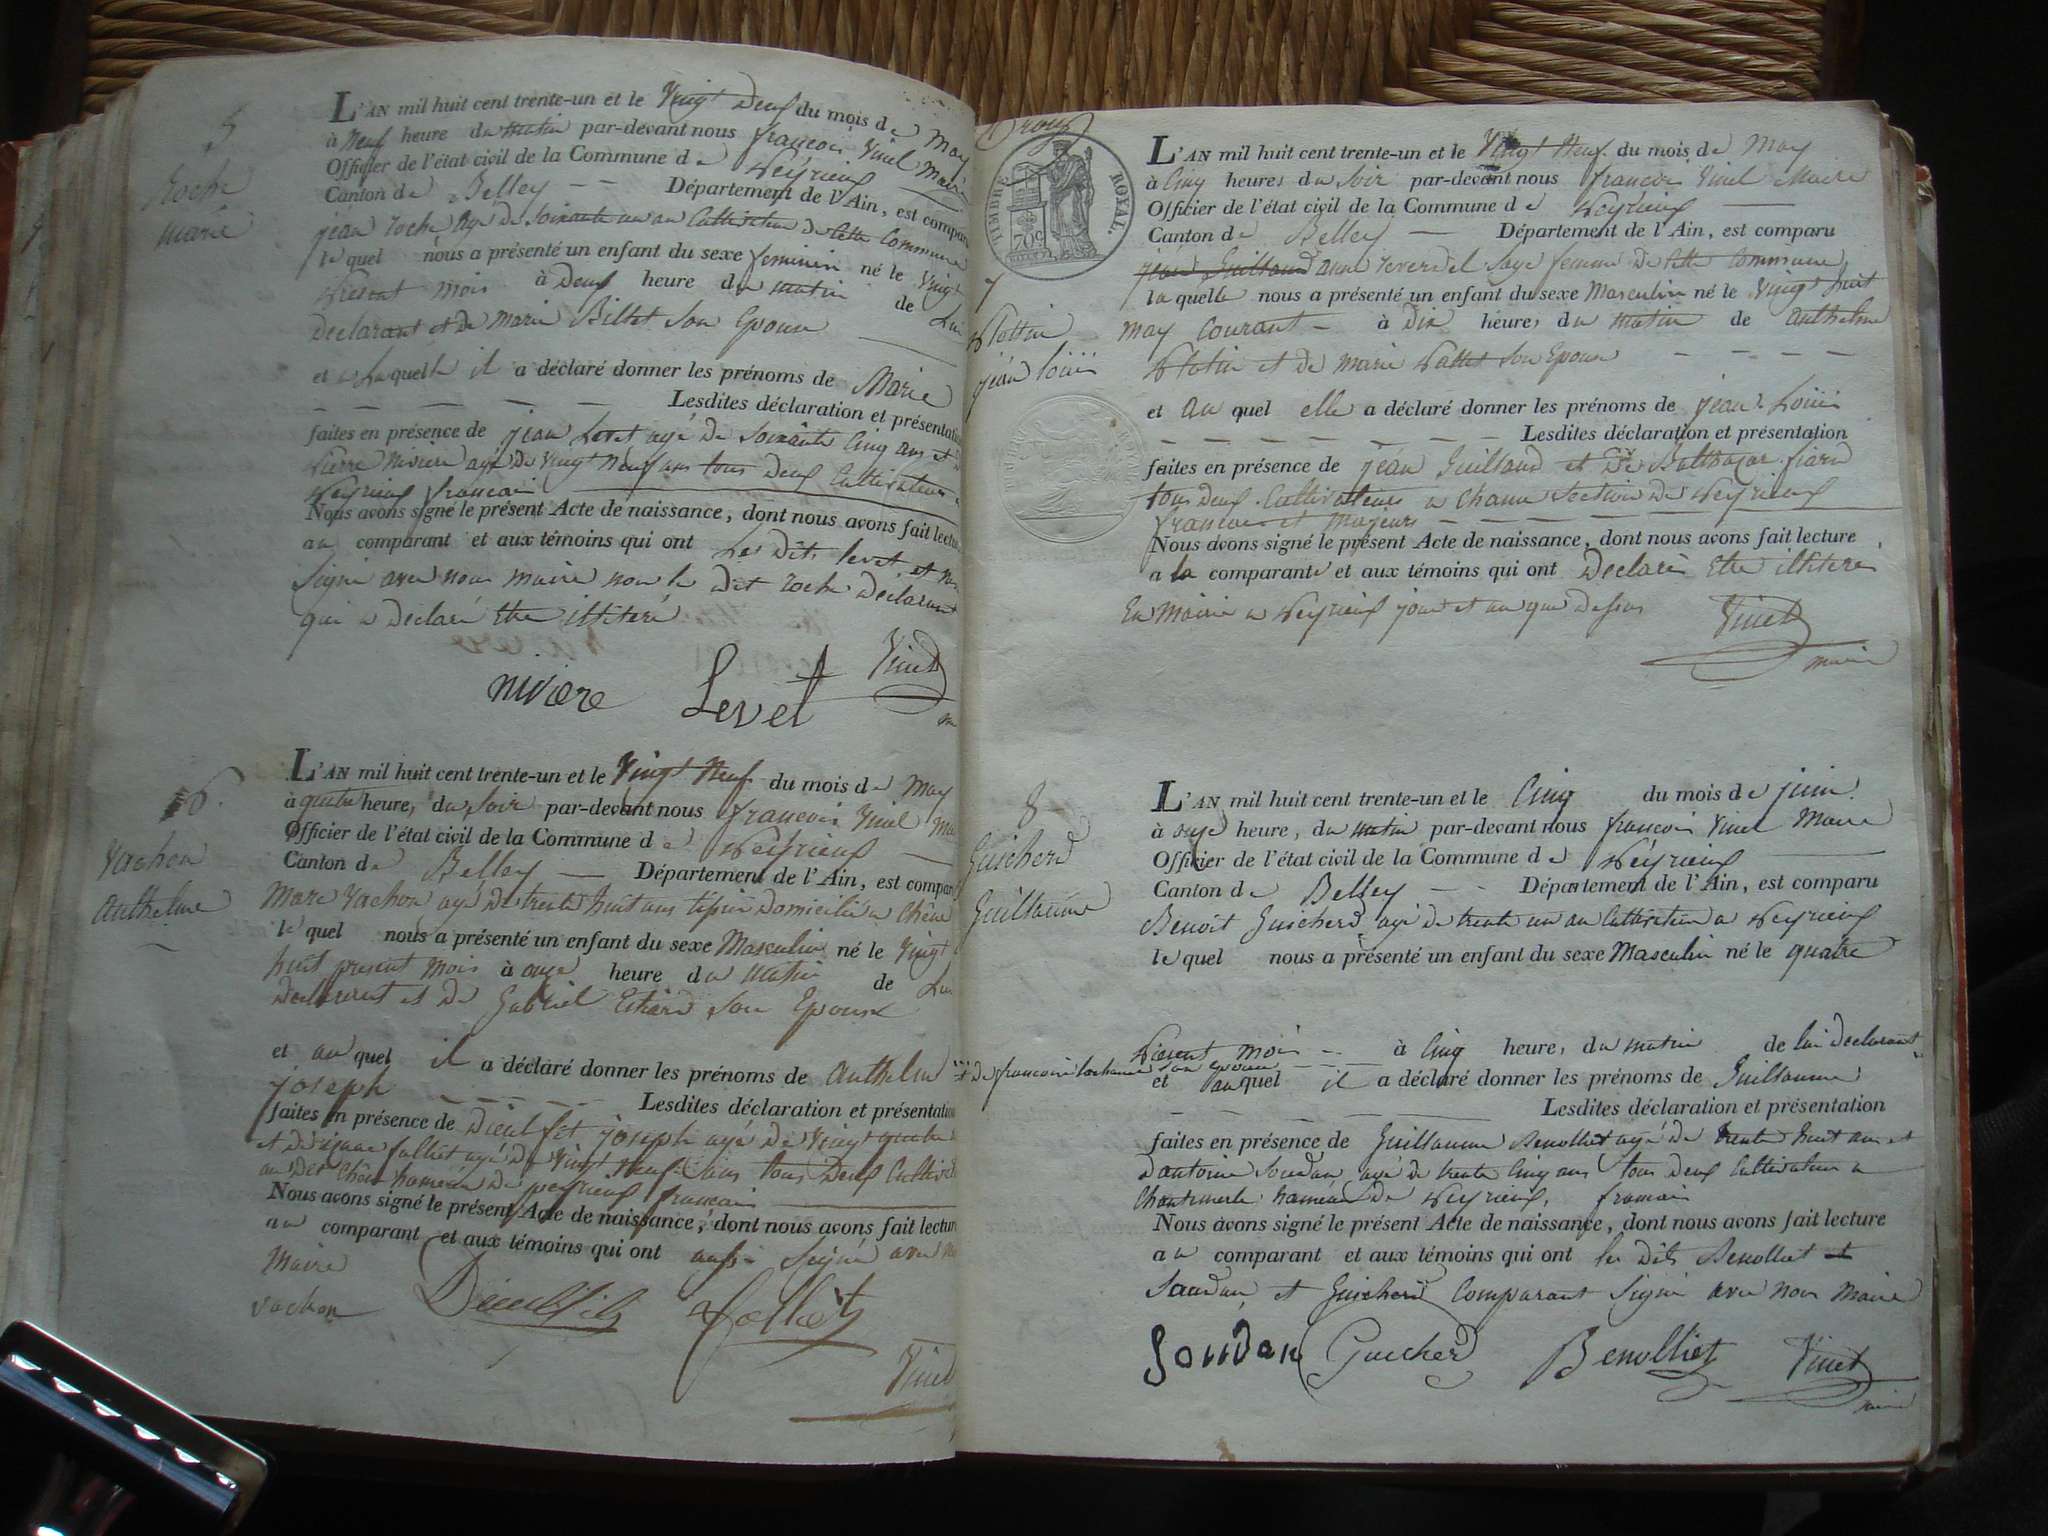 5
Roche
marie
L'AN mil huit cent trente-un et le Vingt Deux du mois de May
à Neuf heure du matin par-devant nous francois Vinet Maire
Officier de l'état civil de la Commune de Peyrieux
Canton de Belley Département de l'Ain, est compar
jean roche agé de soixante un an Cultivateur de Cette Commune
lequel nous a présenté un enfant du sexe feminin né le Vingt
Present mois à Deux heure du matin de Lui
declarant et de marie Billet Son Epouse
et a Laquelle il a déclaré donner les prénoms de Marie
Lesdites déclaration et présentation
faites en présence de jean Levet agé de Soixante Cinq ans et de
Pierre niviere agé de vingt Neuf ans tous deux Cultivateurs a
Peyrieux francais
Nous avons signé le présent Acte de naissance, dont nous avons fait lecture
au comparant et aux témoins qui ont Les Dits levet et
Signé avec nous maire non le dit roche déclarant
qui a declaré Etre illiteré
niviere Levet Vinet
6
Vachon
Anthelme
L'AN mil huit cent trente-un et le Vingt Neuf du mois de May
à quatre heure, du Soir par-devant nous francois Vinet
Officier de l'état civil de la Commune de Peyrieux
Canton de Belley Département de l'Ain, est compar
Marc Vachon agé De trente huit ans Domicilié a
lequel nous a présenté un enfant du sexe Masculin né le Vingt
huit present mois à onze heure du matin de Lui
declarant et de Gabriel Son Epouse
et auquel il a déclaré donner les prénoms de Anthelme
joseph Lesdites déclaration et présentation
faites en présence de Dieulfit joseph agé De Vingt quatre
et De folliet agé De Vingt Neuf ans tous Deux
au Dit haméau De peyrieux francais
Nous avons signé le présent Acte de naissance, dont nous avons fait lecture
au comparant et aux témoins qui ont aussi Signé avec
Maire
vachon Dieulfils folliet
Vinet
TIMBRE ROYAL
70c
7
Plottin
jéan loüis
L'AN mil huit cent trente-un et le Vingt Neuf du mois de May
à Cinq heure, du Soir par-devant nous francois Vinet Maire
Officier de l'état civil de la Commune de Peyrieux
Canton de Belley Département de l'Ain, est comparu
jean Guilland anne reverdel Sage femme de Cette Commune
laquelle nous a présenté un enfant du sexe Masculin né le Vingt huit
may Courant à Dix heure, du matin de anthelme
Plotin et de marie Son Epouse
et Au quel elle a déclaré donner les prénoms de jéan Loüis
Lesdites déclaration et présentation
faites en présence de jéan Guilland et De Balthazar fiard
tous deux Cultivateurs a Section de Peyrieux
francais et Majeurs
Nous avons signé le présent Acte de naissance, dont nous avons fait lecture
a la comparante et aux témoins qui ont Declaré Etre illiteré
En Mairie a Peyrieux jour et an que dessus
Vinet
maire
8
Guicherd
Guillaume
L'AN mil huit cent trente-un et le Cinq du mois de juin
à onze heure, du matin par-devant nous francois Vinet Maire
Officier de l'état civil de la Commune de Peyrieux
Canton de Belley Département de l'Ain, est comparu
Benoit Guicherd agé de trente un an Cultivateur a Peyrieux
lequel nous a présenté un enfant du sexe Masculin né le quatre
Present mois à Cinq heure, du matin de lui declarant
et de francoise son epouse
et auquel il a déclaré donner les prénoms de Guillaume
Lesdites déclaration et présentation
faites en présence de Guillaume Benolliet agé De trente huit ans et
d'antoine Soudan agé de trente Cinq ans tous deux Cultivateur a
Chantemerle haméau De Peyrieux, francais
Nous avons signé le présent Acte de naissance, dont nous avons fait lecture
au comparant et aux témoins qui ont les dits Benolliet et
Soudan et Guicherd Comparant Signé avec nous Maire
Soudan Guicherd Benolliet Vinet
maire